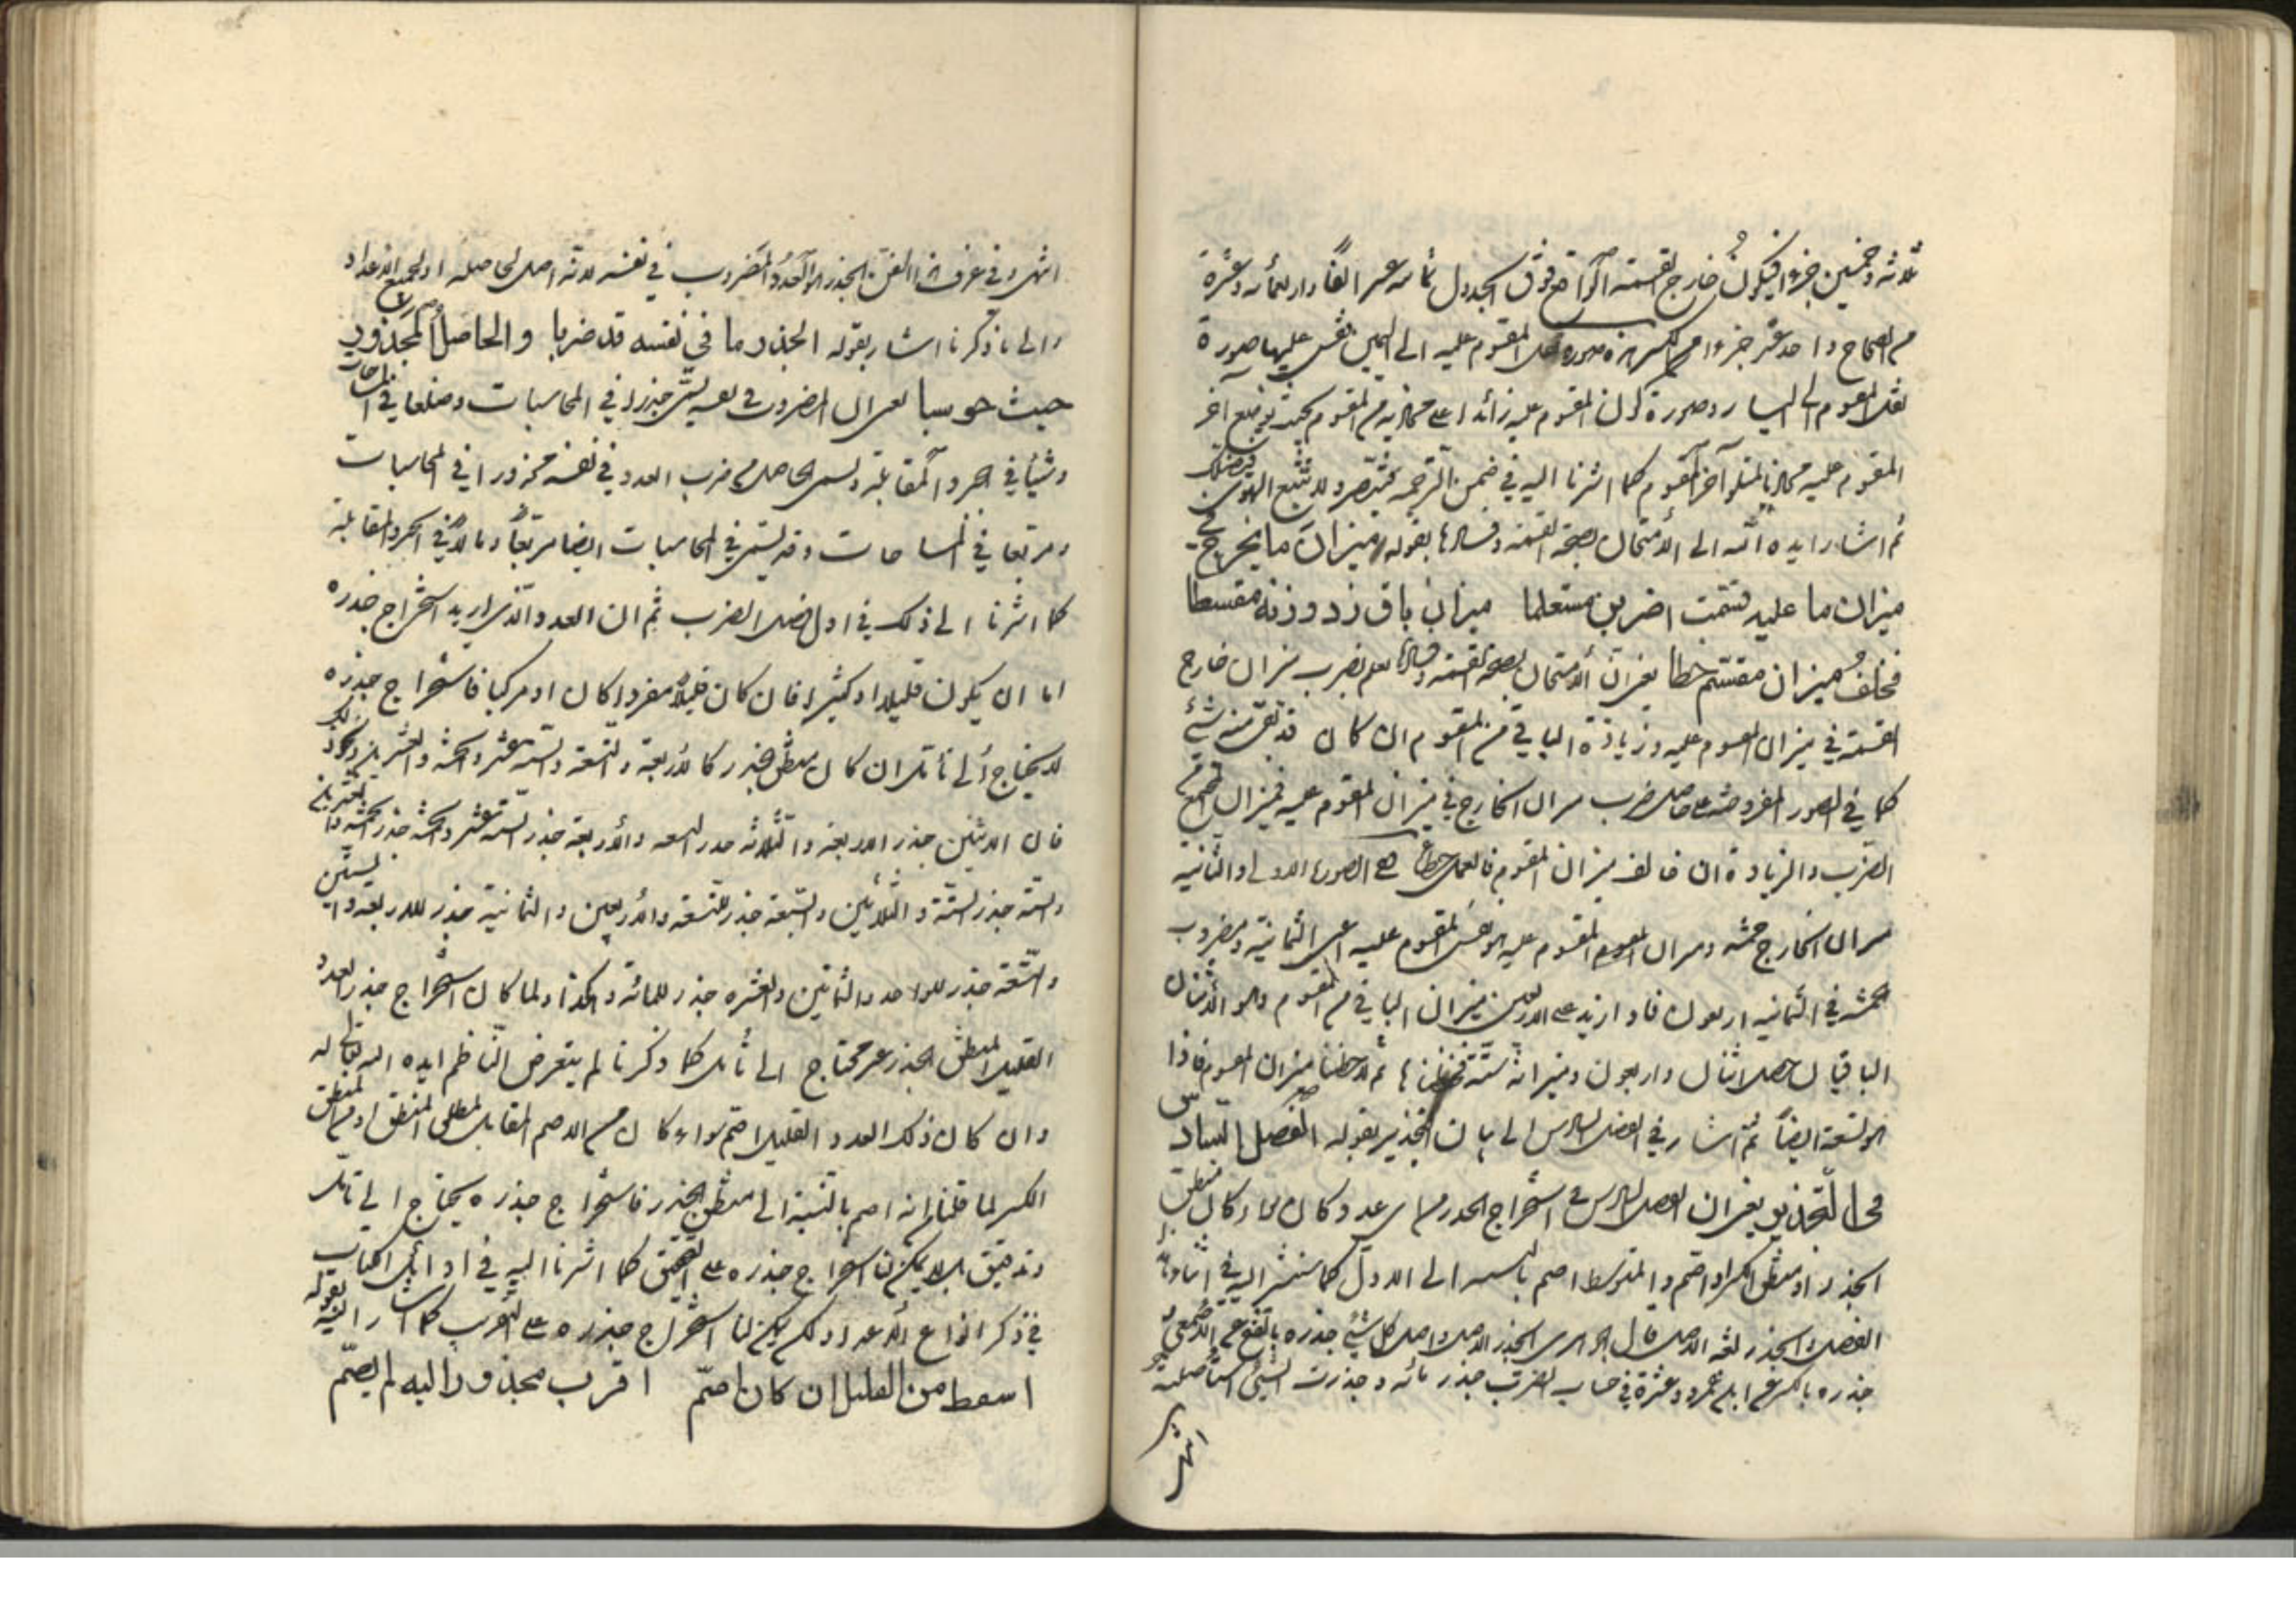 ثلاثة وخمسين جزءا فيكون خارج القسمة الواقع فوق الجدول ثمانية عشر الفا واربعمائة وعشرة
من الصحاح واحد عشر جزءا من المقسوم عليه الى اليمين صورة
المقسوم الى اليسار وصورة كون المقسوم عليه زائدا على محاذيه من المقسوم بحيث يوضع آخر
المقسوم عليه محاذيا لمتلو آخر المقسوم كما اشرنا اليه في ضمن الترجمة
ثم اشار ايده الله الى الامتحان بصحة القسمة وفسادها بقوله ميزان ما يخرج في
ميزان ما عليه قسمت اضربن مستعلما ميزان باق زد وزنه مقسطا
فخلف ميزان مقسم خطا يعني ان الامتحان بصحة القسمة وفسادها يعلم بضرب ميزان خارج
القسمة في ميزان المقسوم عليه وزيادة الباقي من المقسوم ان كان قد بقي منه شيء
كما في الصور المفروضة على حاصل ضرب ميزان الخارج في ميزان المقسوم عليه فميزان المجتمع
الضرب والزيادة ان خالف ميزان المقسوم فالعمل خطأ ففي الصورة الاولى والثانية
ميزان الخارج خمسة وميزان المقسوم عليه هو نفس المقسوم عليه اعني الثمانية ومضروب
الخمسة في الثمانية اربعون فاذا زيد على الاربعين ميزان الباقي من المقسوم وهو الاثنان
الباقيان حصل اثنان واربعون وميزانه ستة ثم لاحظنا ميزان المقسوم فاذا
هو ستة ايضا ثم اشار في الفصل السادس الى بيان التجذير بقوله الفصل السادس
في التجذير يعني ان الفصل السادس في استخراج الجذر من اي عدد كان سواء كان منطق
الجذر او منطق الكسر او اصم والمتوسط اصم بالنسبة الى الاول كما سنشير اليه في اثناء
الفصل والجذر لغة الاصل قال الجوهري الجذر الاصل واصل كل شيء جذره بالفتح عن الاصمعي
جذره بالكسر عن ابي عمرو وعشرة في حساب الضرب جذر مائة وجذرت الشيء استأصلته
انتهى
انتهى وفي عرف هذا الفن الجذر هو العدد المضروب في نفسه لانه اصل لحاصله او لجميع الاعداد
والى ما ذكرنا اشار بقوله الجذر ما في نفسه قد ضربا والحاصل المجذور
حيث حوسبا يعني ان المضروب في نفسه يسمى جذرا في المحاسبات وضلعا في المساحات
وشيئا في الجبر والمقابلة ويسمى الحاصل من ضرب العدد في نفسه مجذورا في المحاسبات
ومربعا في المساحات وقد يسمى في المحاسبات ايضا مربعا ومالا في الجبر والمقابلة
كما اشرنا الى ذلك في اول فصل الضرب ثم ان العدد الذي اريد استخراج جذره
اما ان يكون قليلا او كثيرا فان كان قليلا مفردا كان او مركبا فاستخراج جذره
لا يحتاج الى تأمل ان كان منطق الجذر كالاربعة والتسعة والستة عشر والخمسة والعشرين
فان الاثنين جذر الاربعة والثلاثة جذر التسعة والاربعة جذر الستة عشر والخمسة جذر الخمسة والعشرين
والستة جذر الستة والثلاثين والسبعة جذر للتسعة والاربعين والثمانية جذر للاربعة والستين
والتسعة جذر للواحد والثمانين والعشرة جذر للمائة وهكذا ولما كان استخراج جذر العدد
القليل المنطق الجذر غير محتاج الى تأمل كما ذكرنا لم يتعرض الناظم ايده الله تعالى له
وان كان ذلك العدد القليل اصم سواء كان من الاصم المقابل لمطلق المنطق او من المنطق
الكسر لما قلنا من انه اصم بالنسبة الى منطق الجذر فاستخراج جذره يحتاج الى تأمل
وتدقيق بل لا يمكن لنا استخراج جذره على التحقيق كما اشرنا اليه في اوائل الكتاب
في ذكر انواع الاعداد ولكن يمكن لنا استخراج جذره على التقريب كما اشار اليه بقوله
اسقط من القليل ان كان اصم اقرب مجذور اليه لم يصم